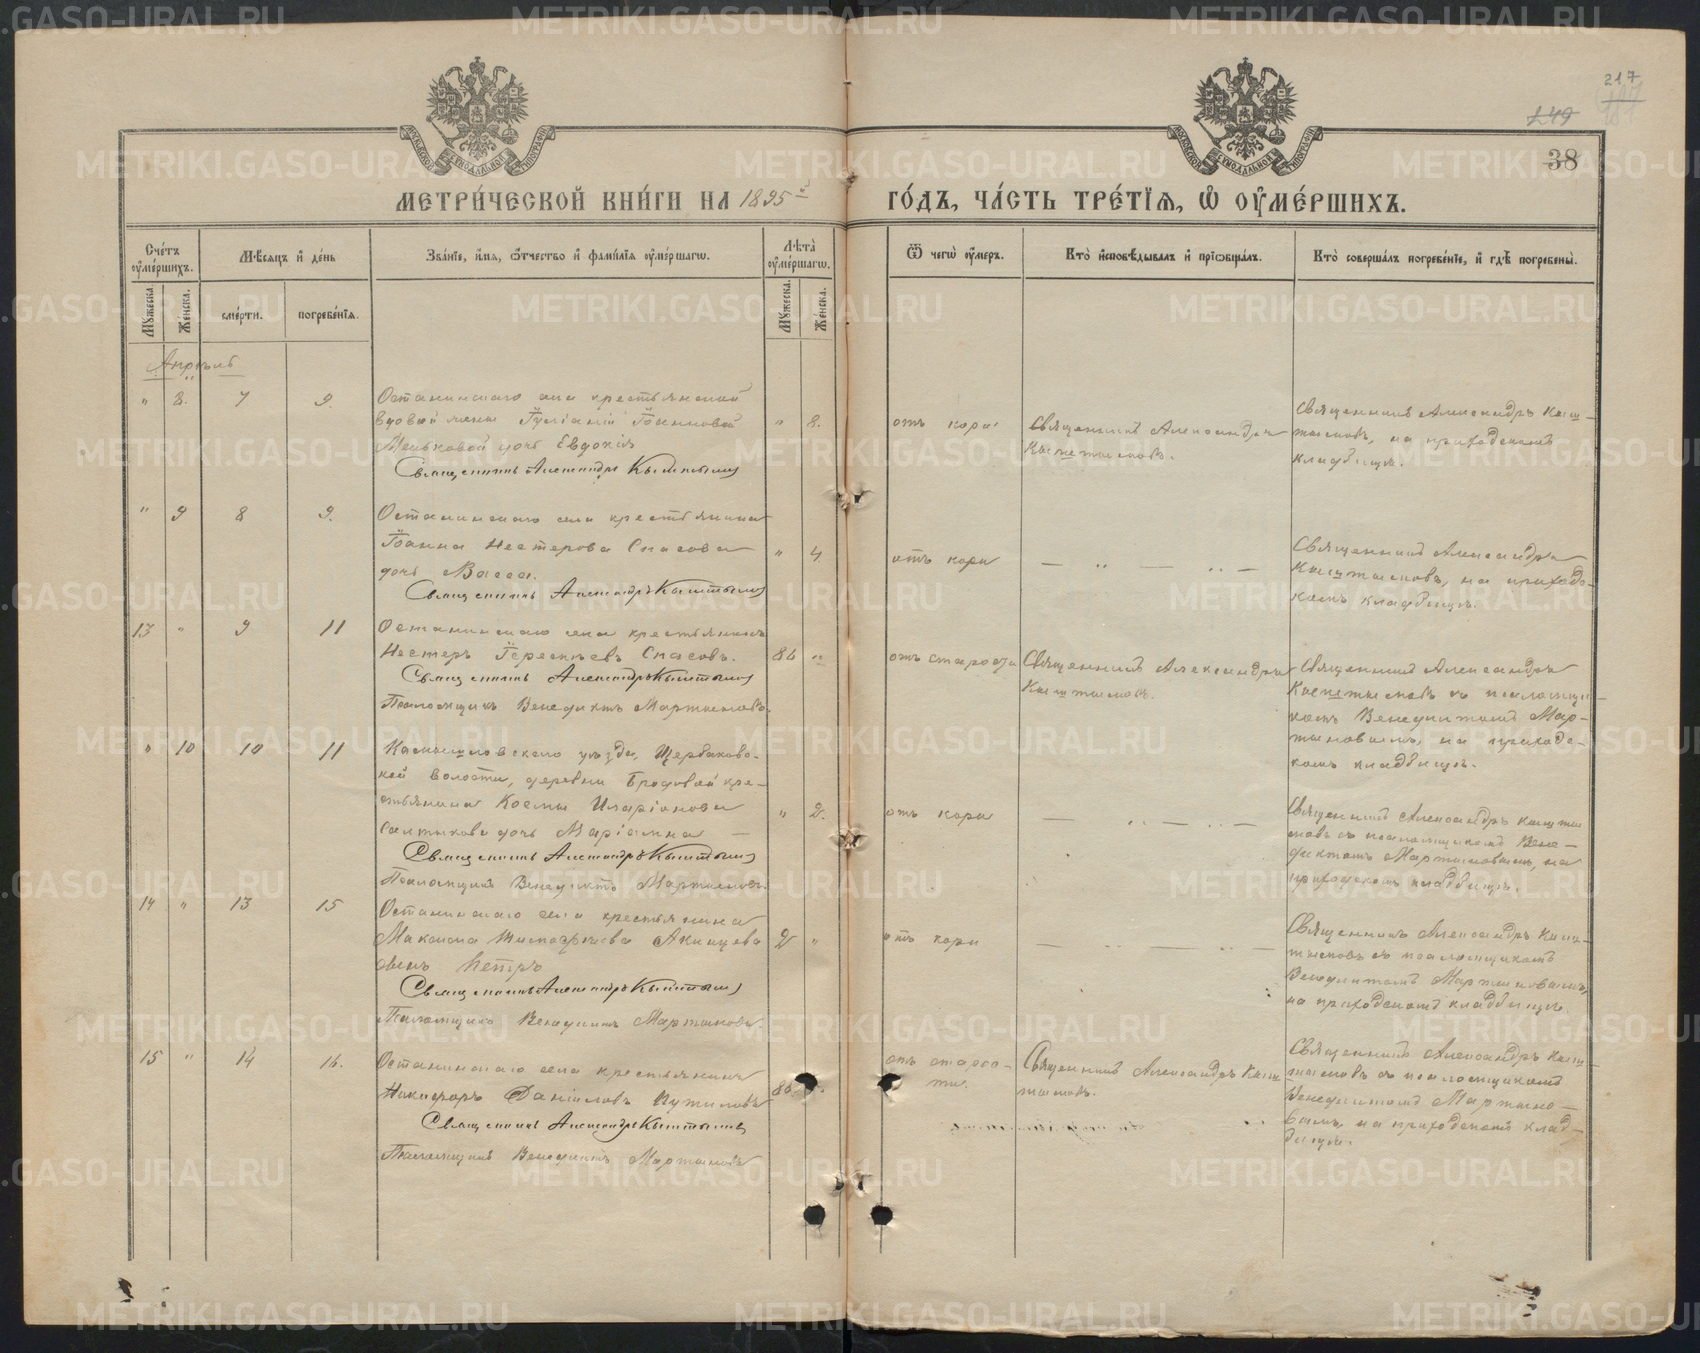 217
249
38
МЕТРИ́ЧЕСКОЙ КНИ́ГИ НА 1895й
ГО́ДЪ, ЧА́СТЬ ТРЕ́ТІѦ, Ѡ҆ ОУ҆МЕ́РШИХЪ.
Сче́тъ оу҆ме́ршихъ.
Мѣ́сяцъ и҆ де́нь
Зва́ніе, и҆́мя, ѻ҆́тчество и҆ фами́лія оу҆ме́ршагѡ.
Лѣ́та оу҆ме́ршагѡ.
Ѿ чегѡ̀ оу҆́меръ.
Кто̀ и҆сповѣ́дывалъ и҆ пріѡбща́лъ.
Кто̀ соверша́лъ погребе́ніе, и҆ гдѣ̀ погребены̀.
Му́жеска.
Же́нска.
сме́рти.
погребе́нія.
Му́жеска.
Же́нска.
Апрѣль
" 8. 7 9
Останинскаго села крестьянской
вдовой жены Іуліаніи Іоанновой
Меньковой дочь Евдокія
Священникъ Александръ Кыштымовъ
" 8.
отъ кори
Священникъ Александръ
Кыштымовъ.
Священникъ Александръ Кыш-
тымовъ, на приходскомъ
кладбищѣ.
" 9 8 9.
Останинскаго села крестьянина
Іоанна Нестерова Спасова
дочь Васса.
Священникъ Александръ Кыштымовъ
" 4
отъ кори
— " — " —
Священникъ Александръ
Кыштымовъ, на приход-
скомъ кладбищѣ.
13 " 9 11
Останинскаго села крестьянинъ
Нестеръ Спасовъ.
Священникъ Александръ Кыштымовъ
Псаломщикъ Венедиктъ Мартыновъ.
"
отъ старости
Священникъ Александръ
Кыштымовъ.
Священникъ Александръ
Кыштымовъ съ псаломщи-
комъ Венедиктомъ Мар-
тыновымъ, на приходс-
комъ кладбищѣ.
" 10 10 11
Камышловскаго уѣзда, Щербаковс-
кой волости, деревни Бродовой кре-
стьянина Косьмы Иларіонова
Салтыкова дочь Маріамна —
Священникъ Александръ Кыштымовъ
Псаломщикъ Венедиктъ Мартыновъ.
" 2.
отъ кори
— " — " —
Священникъ Александръ Кышты-
мовъ съ псаломщикомъ Вене-
диктомъ Мартыновымъ, на
приходскомъ кладбищѣ.
14 " 13 15
Останинскаго села крестьянина
Максима Акишева
сынъ Петръ
Священникъ Александръ Кыштымовъ
Псаломщикъ Венедиктъ Мартыновъ.
2 "
отъ кори
— " — " —
Священникъ Александръ Кыш-
тымовъ съ псаломщикомъ
Венедиктомъ Мартыновымъ,
на приходскомъ кладбищѣ.
15 " 14 16.
Останинскаго села крестьянинъ
Никифоръ Даніиловъ Путиловъ
Священникъ Александръ Кыштымовъ
Псаломщикъ Венедиктъ Мартыновъ
отъ старос-
ти.
Священникъ Александръ Кыш-
тымовъ.
Священникъ Александръ Кыш-
тымовъ съ псаломщикомъ
Венедиктомъ Мартыно-
вымъ, на приходскомъ клад-
бищѣ.
METRIKI.GASO-URAL.RU